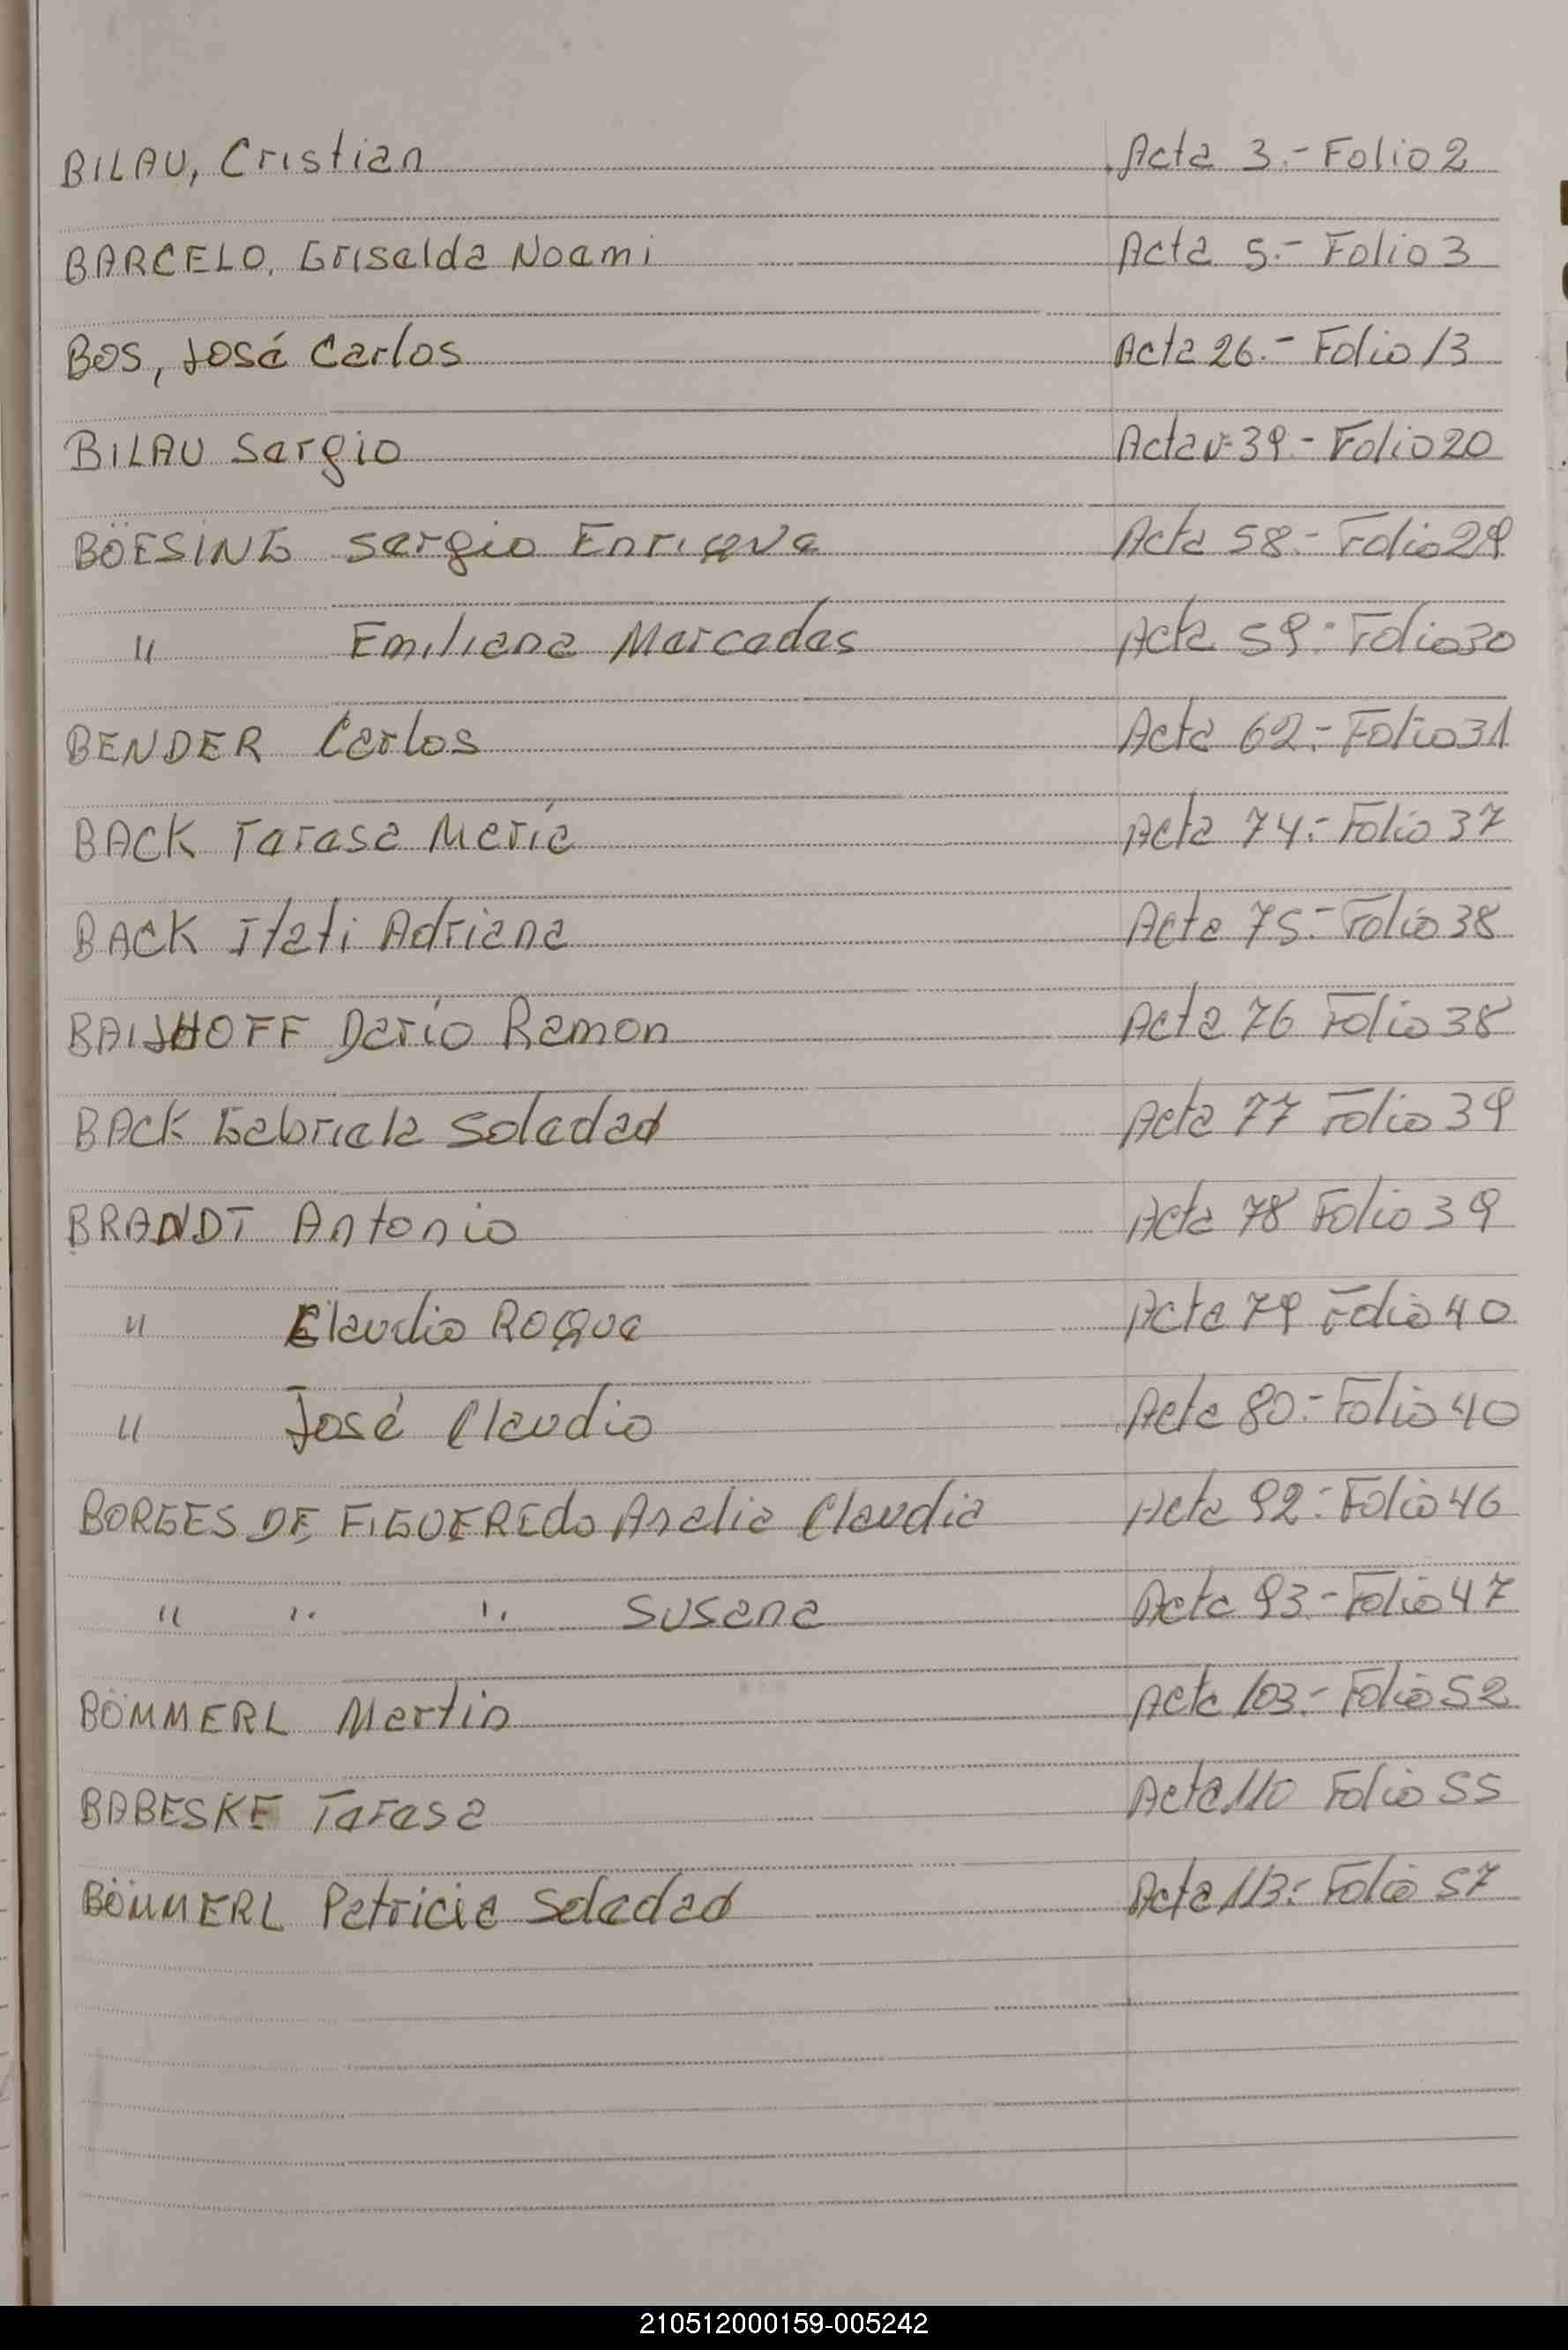 BILAU, Cristian Acta 3.- Folio 2
BARCELO, Griselda Noemi Acta 5.- Folio 3
BOS, José Carlos Acta 26.- Folio 13
BILAU Sergio Acta Nº 39.- Folio 20
BÖESING Sergio Enrique Acta 58.- Folio 29
" Emiliana Mercedes Acta 59.- Folio 30
BENDER Carlos Acta 62.- Folio 31
BACK Teresa María Acta 74.- Folio 37
BACK Itati Adriana Acta 75.- Folio 38
BAIJHOFF Darío Ramon Acta 76 Folio 38
BACK Gabriela Soledad Acta 77 Folio 39
BRANDT Antonio Acta 78 Folio 39
" Claudio Roque Acta 79 Folio 40
" José Claudio Acta 80.- Folio 40
BORGES DE FIGUEREDO Analia Claudia Acta 92.- Folio 46
" " " Susana Acta 93.- Folio 47
BÖMMERL Martin Acta 103.- Folio 52
BABESKE Teresa Acta 110 Folio 55
BÖMMERL Patricia Soledad Acta 113.- Folio 57
210512000159-005242